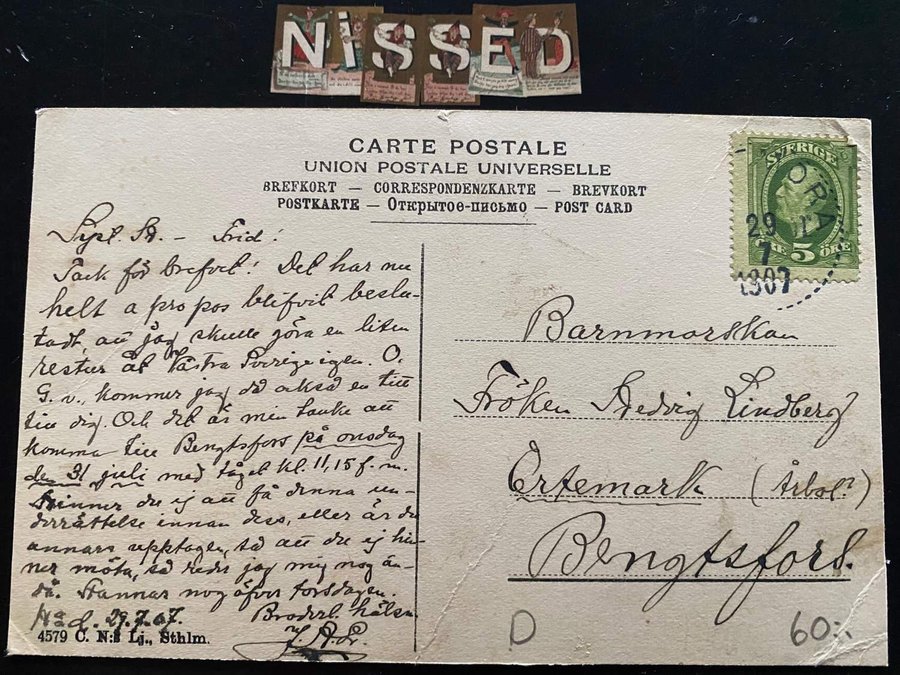 NiSSED
CARTE POSTALE
UNION POSTALE UNIVERSELLE
BREFKORT — CORRESPONDENZKARTE — BREVKORT
POSTKARTE — Открытое-письмо — POST CARD
SVERIGE
ORRA
29
7
1907
5 ÖRE
Frid!
Tack för brefvet! Det har nu
helt a pro pos blifvit beslu-
tadt, att jag skulle göra en liten
restur åt Västra Sverige igen. O.
G. v., kommer jag då också en titt
till dig. Och det är min tanke att
komma till Bengtsfors på onsdag
den 31 juli med tåget kl. 11,15 f. m.
Hinner du ej att få denna un-
derrättelse innan dess, eller är du
annars upptagen, så att du ej hin-
ner möta, så reder jag mig nog än-
då. Stannar nog öfver torsdagen.
29.7.07. Broderl. hälsn.
4579 C. N:s Lj., Sthlm.
Barnmorskan
Fröken Hedvig Lindberg
Ertemark (Årbol?)
Bengtsfors.
D
60:-